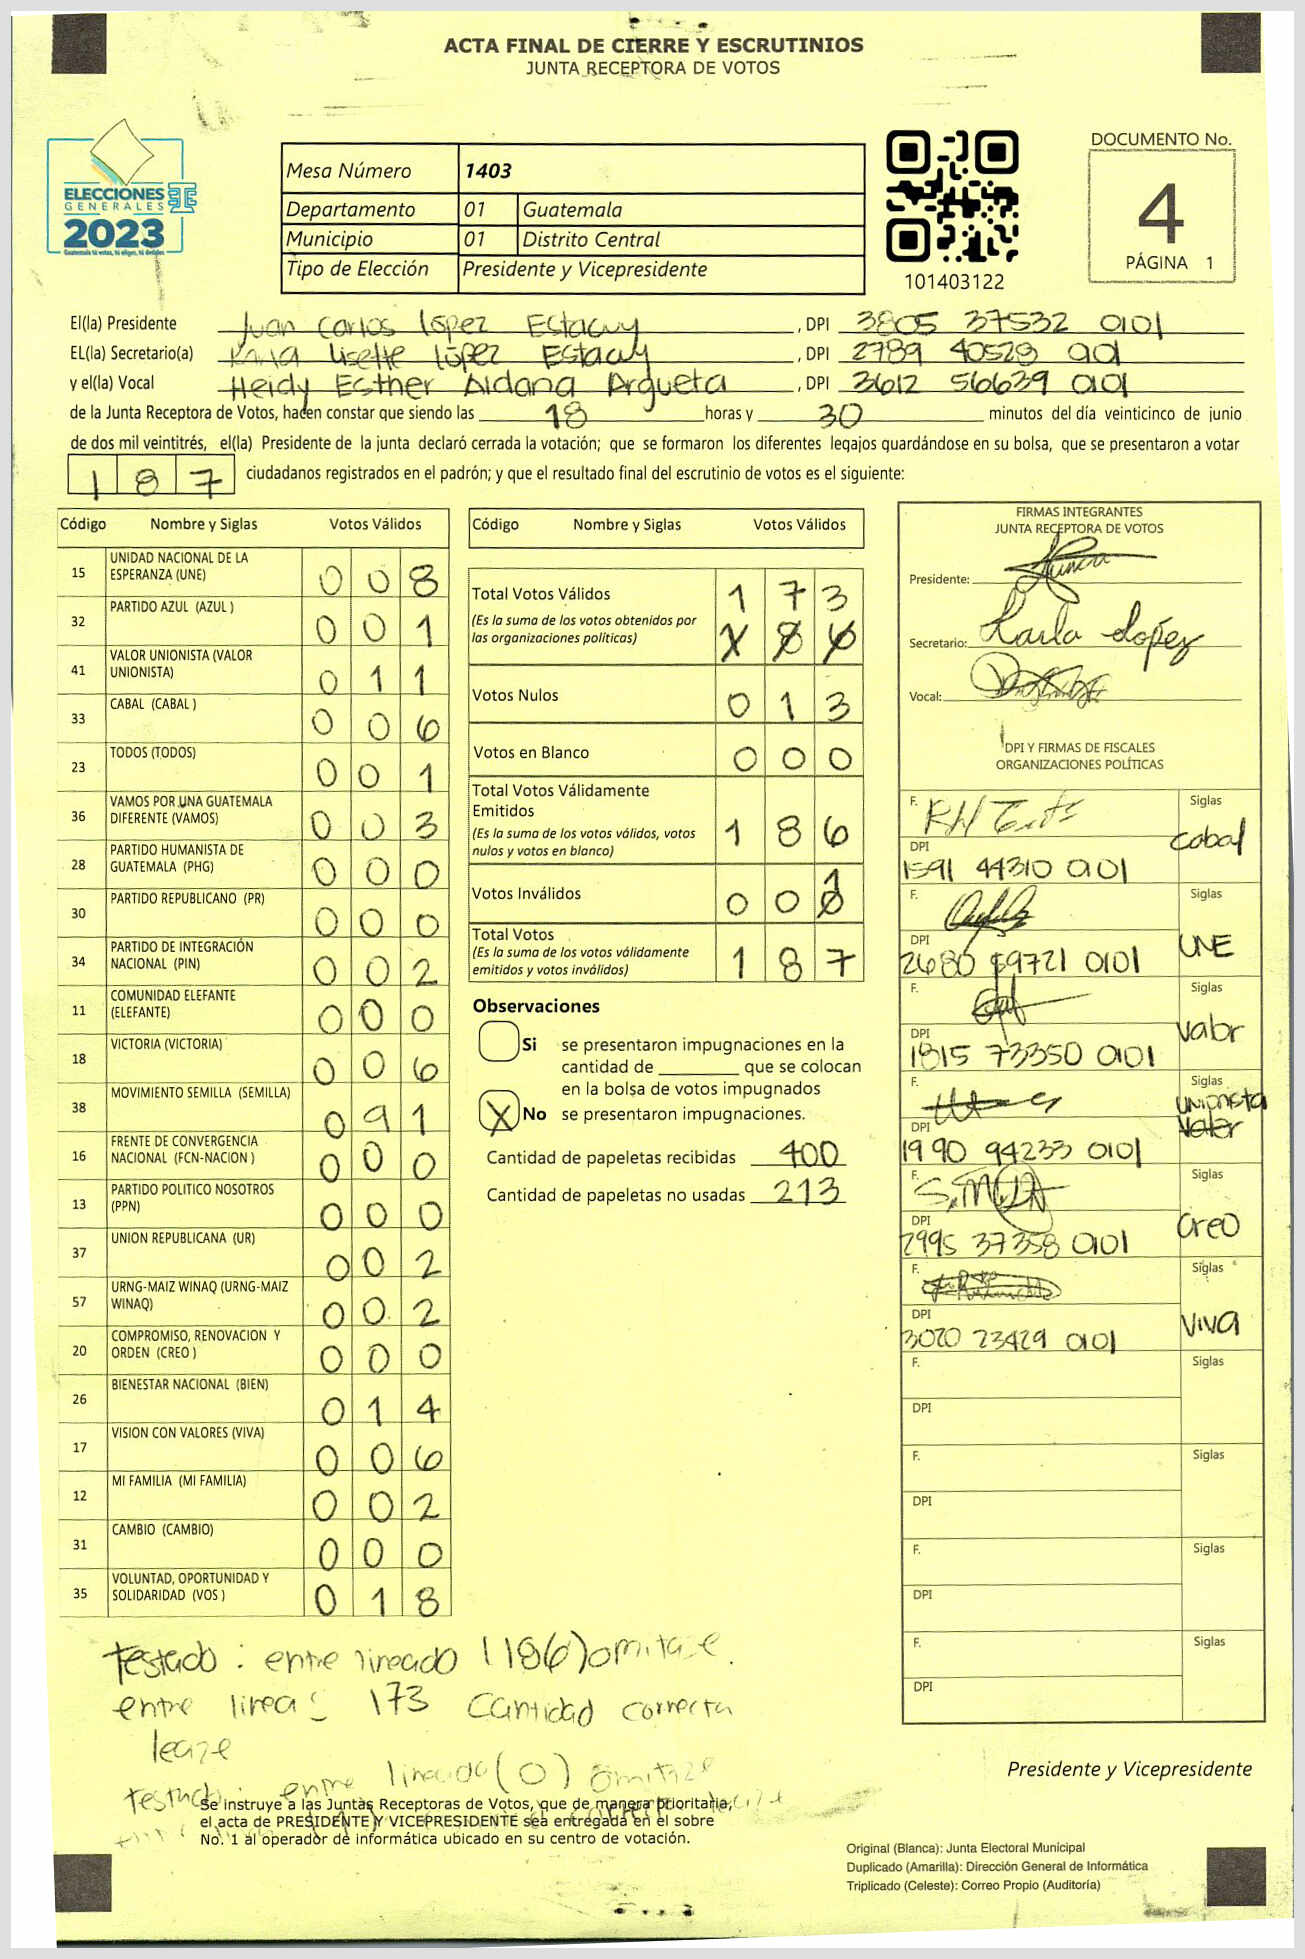 ACTA FINAL DE CIERRE Y ESCRUTINIOS
JUNTA RECEPTORA DE VOTOS
ELECCIONES
GENERALES
2023
Mesa Número 1403
Departamento 01 Guatemala
Municipio 01 Distrito Central
Tipo de Elección Presidente y Vicepresidente
101403122
DOCUMENTO No.
4
PÁGINA 1
El(la) Presidente Juan Carlos López Estacuy, DPI 3805 37532 0101
EL(la) Secretario(a) Karla Lisette López Estacuy, DPI 2789 40529 0101
y el(la) Vocal Heidy Esther Aldana Argueta, DPI 3612 56639 0101
de la Junta Receptora de Votos, hacen constar que siendo las 18 horas y 30 minutos del día veinticinco de junio
de dos mil veintitrés, el(la) Presidente de la junta declaró cerrada la votación; que se formaron los diferentes legajos guardándose en su bolsa, que se presentaron a votar
187 ciudadanos registrados en el padrón; y que el resultado final del escrutinio de votos es el siguiente:
Código Nombre y Siglas Votos Válidos
15 UNIDAD NACIONAL DE LA ESPERANZA (UNE) 008
32 PARTIDO AZUL (AZUL ) 001
41 VALOR UNIONISTA (VALOR UNIONISTA) 011
33 CABAL (CABAL ) 006
23 TODOS (TODOS) 001
36 VAMOS POR UNA GUATEMALA DIFERENTE (VAMOS) 003
28 PARTIDO HUMANISTA DE GUATEMALA (PHG) 000
30 PARTIDO REPUBLICANO (PR) 000
34 PARTIDO DE INTEGRACIÓN NACIONAL (PIN) 002
11 COMUNIDAD ELEFANTE (ELEFANTE) 000
18 VICTORIA (VICTORIA) 006
38 MOVIMIENTO SEMILLA (SEMILLA) 091
16 FRENTE DE CONVERGENCIA NACIONAL (FCN-NACION ) 000
13 PARTIDO POLITICO NOSOTROS (PPN) 000
37 UNION REPUBLICANA (UR) 002
57 URNG-MAIZ WINAQ (URNG-MAIZ WINAQ) 002
20 COMPROMISO, RENOVACION Y ORDEN (CREO ) 000
26 BIENESTAR NACIONAL (BIEN) 014
17 VISION CON VALORES (VIVA) 006
12 MI FAMILIA (MI FAMILIA) 002
31 CAMBIO (CAMBIO) 000
35 VOLUNTAD, OPORTUNIDAD Y SOLIDARIDAD (VOS ) 018
Código Nombre y Siglas Votos Válidos
Total Votos Válidos 173
(Es la suma de los votos obtenidos por las organizaciones políticas) 186
Votos Nulos 013
Votos en Blanco 000
Total Votos Válidamente Emitidos
(Es la suma de los votos válidos, votos nulos y votos en blanco) 186
Votos Inválidos 001
Total Votos
(Es la suma de los votos válidamente emitidos y votos inválidos) 187
Observaciones
Si se presentaron impugnaciones en la
cantidad de ________ que se colocan
en la bolsa de votos impugnados
X No se presentaron impugnaciones.
Cantidad de papeletas recibidas 400
Cantidad de papeletas no usadas 213
FIRMAS INTEGRANTES
JUNTA RECEPTORA DE VOTOS
Presidente:
Secretario: Karla López
Vocal:
DPI Y FIRMAS DE FISCALES
ORGANIZACIONES POLÍTICAS
F. Siglas
DPI Cabal
1591 44310 0101
F. Siglas
DPI UNE
2680 59721 0101
F. Siglas
DPI Valor
1815 73350 0101
F. Siglas
Unionista
DPI Valor
1990 94233 0101
F. Siglas
DPI Creo
2995 37358 0101
F. Siglas
DPI Viva
3020 23429 0101
F. Siglas
DPI
F. Siglas
DPI
F. Siglas
DPI
F. Siglas
DPI
testado: entre lineado (186) omitase.
entre linea: 173 Cantidad correcta
lease
testado: entre lineado (0) omitase
Se instruye a las Juntas Receptoras de Votos, que de manera prioritaria,
el acta de PRESIDENTE Y VICEPRESIDENTE sea entregada en el sobre
No. 1 al operador de informática ubicado en su centro de votación.
Presidente y Vicepresidente
Original (Blanca): Junta Electoral Municipal
Duplicado (Amarilla): Dirección General de Informática
Triplicado (Celeste): Correo Propio (Auditoría)